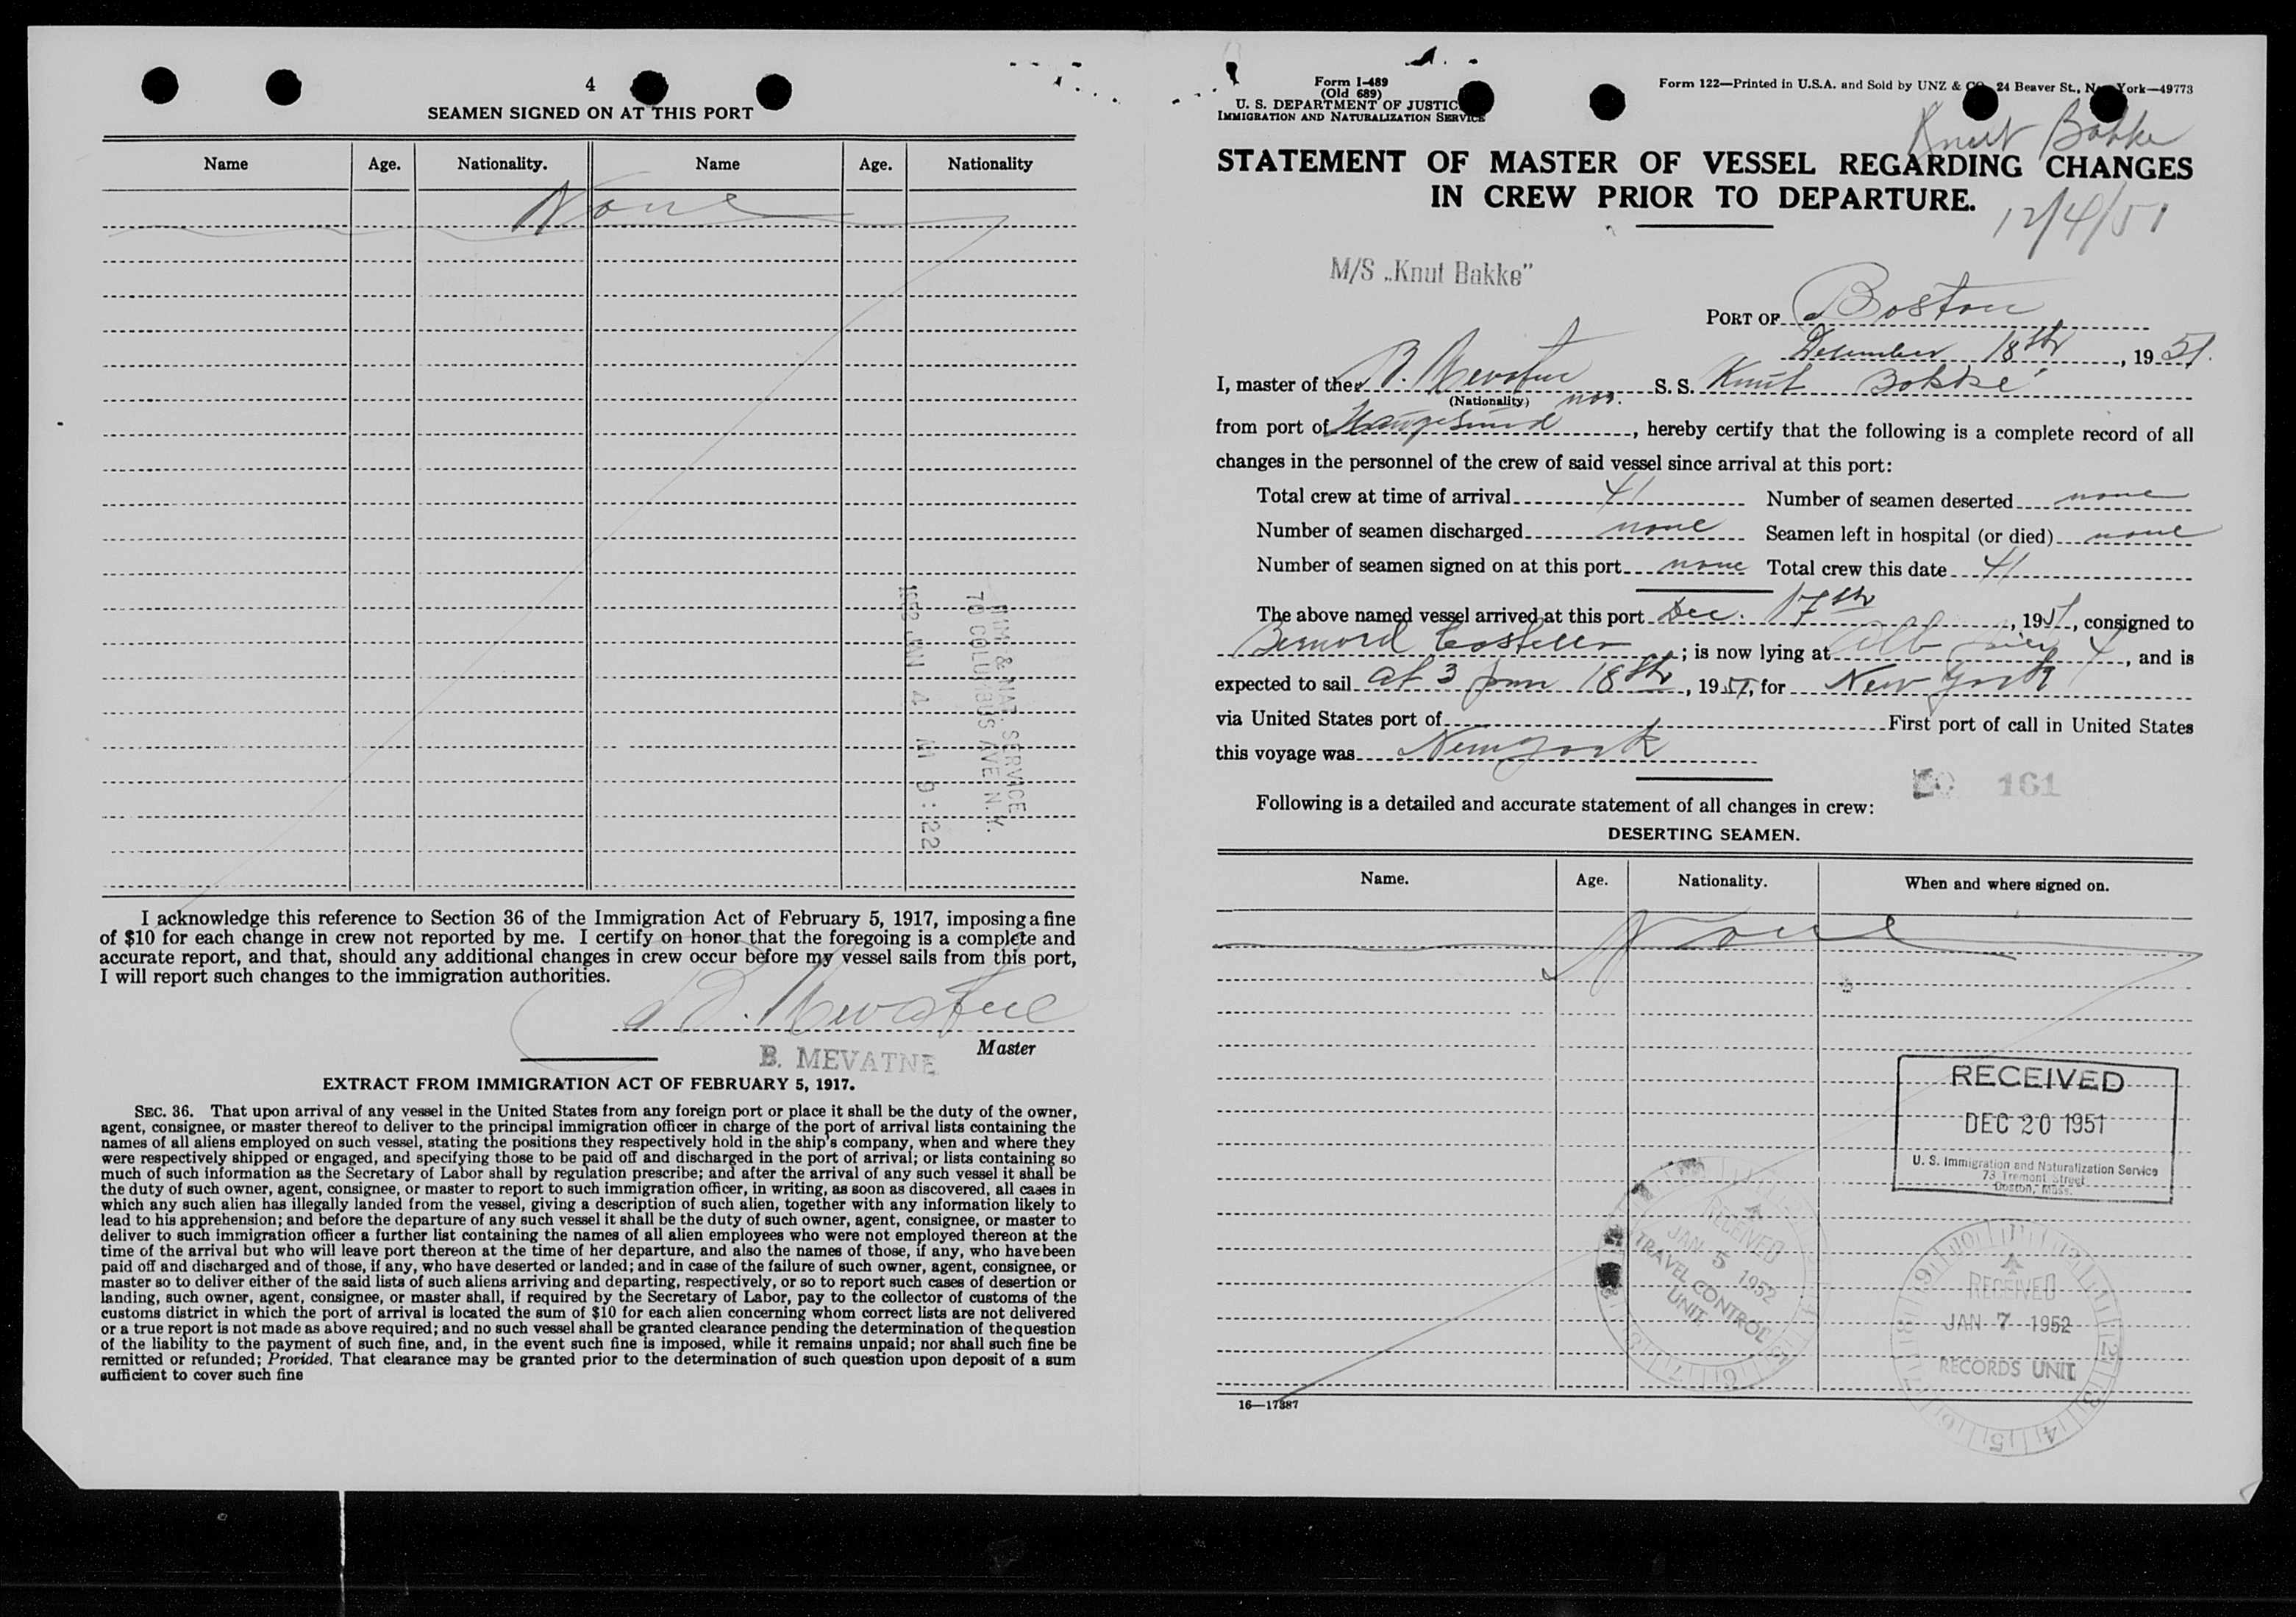 4
SEAMEN SIGNED ON AT THIS PORT
Name Age. Nationality. Name Age. Nationality
None
IMM & NAT. SERVICE
70 COLUMBUS AVE. N.Y.
1952 JAN 4 AM 9:22
I acknowledge this reference to Section 36 of the Immigration Act of February 5, 1917, imposing a fine
of $10 for each change in crew not reported by me. I certify on honor that the foregoing is a complete and
accurate report, and that, should any additional changes in crew occur before my vessel sails from this port,
I will report such changes to the immigration authorities.
B. Mevatne
B. MEVATNE Master
EXTRACT FROM IMMIGRATION ACT OF FEBRUARY 5, 1917.
SEC. 36. That upon arrival of any vessel in the United States from any foreign port or place it shall be the duty of the owner,
agent, consignee, or master thereof to deliver to the principal immigration officer in charge of the port of arrival lists containing the
names of all aliens employed on such vessel, stating the positions they respectively hold in the ship's company, when and where they
were respectively shipped or engaged, and specifying those to be paid off and discharged in the port of arrival; or lists containing so
much of such information as the Secretary of Labor shall by regulation prescribe; and after the arrival of any such vessel it shall be
the duty of such owner, agent, consignee, or master to report to such immigration officer, in writing, as soon as discovered, all cases in
which any such alien has illegally landed from the vessel, giving a description of such alien, together with any information likely to
lead to his apprehension; and before the departure of any such vessel it shall be the duty of such owner, agent, consignee, or master to
deliver to such immigration officer a further list containing the names of all alien employees who were not employed thereon at the
time of the arrival but who will leave port thereon at the time of her departure, and also the names of those, if any, who have been
paid off and discharged and of those, if any, who have deserted or landed; and in case of the failure of such owner, agent, consignee, or
master so to deliver either of the said lists of such aliens arriving and departing, respectively, or so to report such cases of desertion or
landing, such owner, agent, consignee, or master shall, if required by the Secretary of Labor, pay to the collector of customs of the
customs district in which the port of arrival is located the sum of $10 for each alien concerning whom correct lists are not delivered
or a true report is not made as above required; and no such vessel shall be granted clearance pending the determination of the question
of the liability to the payment of such fine, and, in the event such fine is imposed, while it remains unpaid; nor shall such fine be
remitted or refunded; Provided, That clearance may be granted prior to the determination of such question upon deposit of a sum
sufficient to cover such fine
Form I-489
(Old 689)
U. S. DEPARTMENT OF JUSTICE
IMMIGRATION AND NATURALIZATION SERVICE
Form 122—Printed in U.S.A. and Sold by UNZ & CO., 24 Beaver St., New York—49773
Knut Bakke
STATEMENT OF MASTER OF VESSEL REGARDING CHANGES
IN CREW PRIOR TO DEPARTURE.
12/4/51
M/S „Knut Bakke"
PORT OF Boston
December 18th, 1951.
I, master of the B. Mevatne S. S. Knut Bakke
(Nationality) nor.
from port of Haugesund, hereby certify that the following is a complete record of all
changes in the personnel of the crew of said vessel since arrival at this port:
Total crew at time of arrival 41 Number of seamen deserted none
Number of seamen discharged none Seamen left in hospital (or died) none
Number of seamen signed on at this port none Total crew this date 41
The above named vessel arrived at this port Dec. 17th, 1951, consigned to
Bernard Costello; is now lying at pier 4, and is
expected to sail at 3 pm 18th, 1951, for New York
via United States port of First port of call in United States
this voyage was New York
161
Following is a detailed and accurate statement of all changes in crew:
DESERTING SEAMEN.
Name. Age. Nationality. When and where signed on.
None
RECEIVED
DEC 20 1951
U. S. Immigration and Naturalization Service
73 Tremont Street
Boston, Mass.
RECEIVED
JAN 5 1952
TRAVEL CONTROL
UNIT
RECEIVED
JAN 7 1952
RECORDS UNIT
16—17387